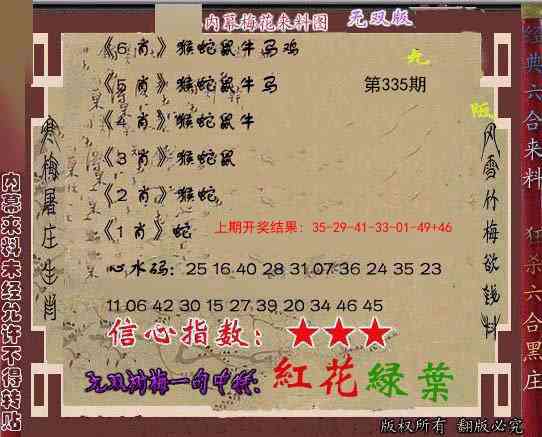 内幕梅花来料图 无双版
《6 肖》 猴蛇鼠牛马鸡
《5 肖》 猴蛇鼠牛马 第335期
《4 肖》 猴蛇鼠牛
《3 肖》 猴蛇鼠
《2 肖》 猴蛇
《1 肖》 蛇 上期开奖结果：35-29-41-33-01-49+46
心水码：25 16 40 28 31 07 36 24 35 23
11 06 42 30 15 27 39 20 34 46 45
信心指数：★★★
无双刘梅一句中特：紅花綠葉
版权所有 翻版必究
寒梅屠庄生肖
风雪竹梅欲钱料
内幕来料未经允许不得转贴
经典六合来料 狂杀六合黑庄